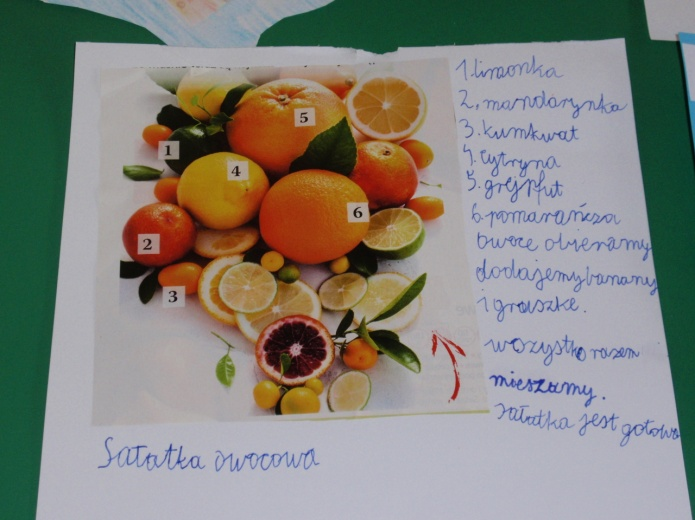 5
1
4
6
2
3
1. limonka
2. mandarynka
3. kumkwat
4. cytryna
5. grejpfut
6. pomarańcza
owoce obieramy
dodajemy banany
i gruszkę.
wszystko razem
mieszamy.
sałatka jest gotowa
Sałatka owocowa